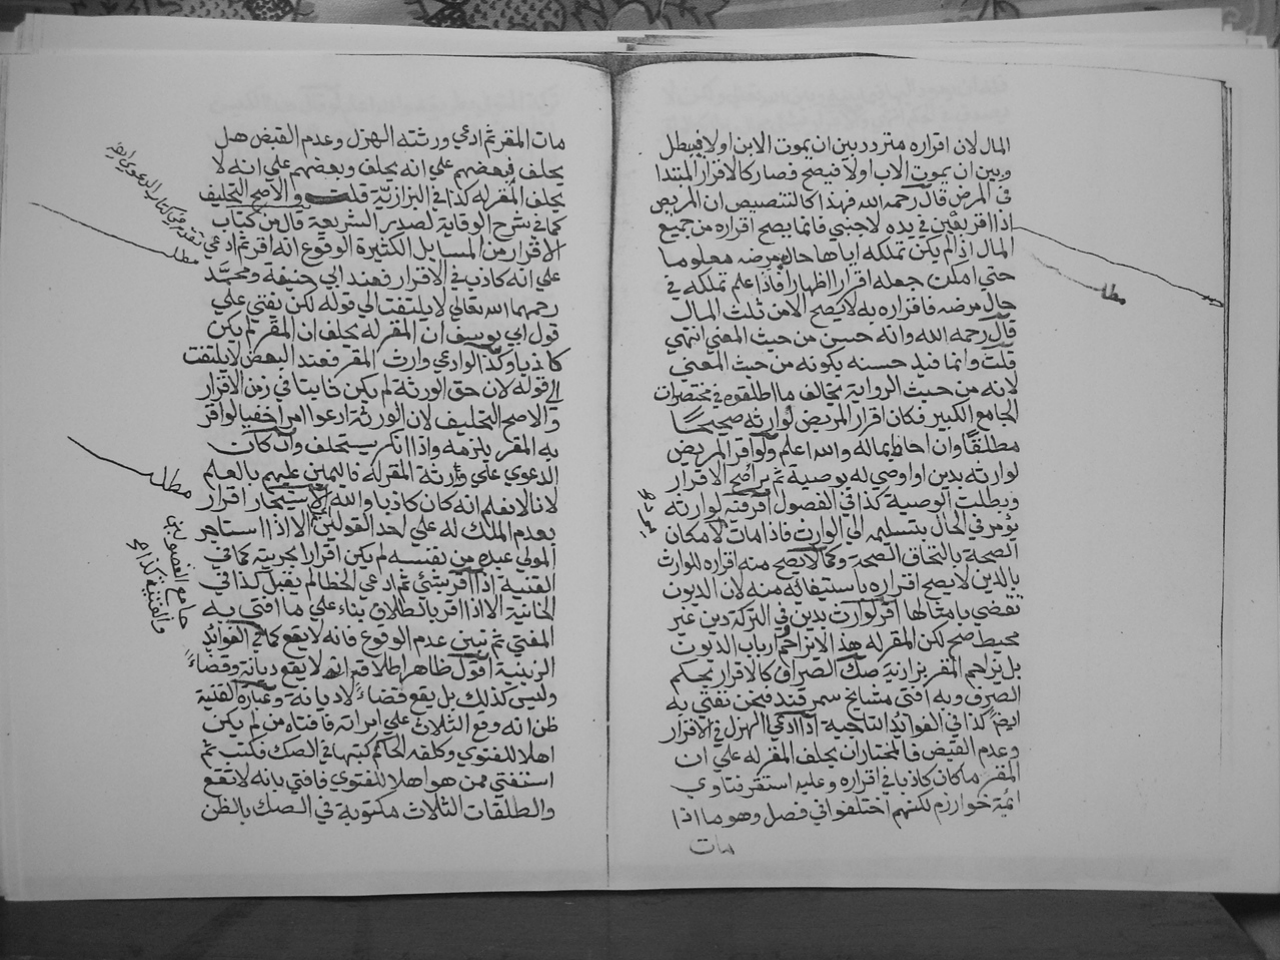 المال لان اقراره متردد بين ان يموت الابن اولا فيبطل
وبين ان يموت الاب اولا فيصح فصار كالاقرار المبتدا
في المرض قال رحمه الله فهذا كالتنصيص ان المريض
اذا اقر بعين في يده لاجنبي فانما يصح اقراره من جميع
المال اذا لم يكن تملكه اياها حال مرضه معلوما
حتي امكن جعله اقرارا اظهارا فاذا علم تملكه في
حال مرضه فاقراره به لا يصح الا من ثلث المال
قال رحمه الله وانه حسن من حيث المعني انتهي
قلت وانما قيد حسنه بكونه من حيث المعني
لانه من حيث الرواية يخالف ما اطلقوه في مختصرات
الجامع الكبير فكان اقرار المريض لوارثه صحيحا
مطلقا وان احاط بماله والله اعلم ولو اقر المريض
لوارثه بدين او اوصي له بوصية ثم برا صح الاقرار
وبطلت الوصية كذا في الفصول اقر فيه لوارثه
يؤمر في الحال بتسليمه الي الوارث فاذا مات لامكان
الصحة بالتحاق الصحة وكما لا يصح منه اقراره للوارث
بالدين لا يصح اقراره باستيفائه منه لان الديون
تقضي بامثالها اقر لوارث بدين في التركة دين غير
محيط صح لكن المقر له هذا لا يزاحم ارباب الديون
بل يزاحم المقر بزازية صك الصراف كالاقرار بحكم
الصرف وبه افتي مشايخ سمرقند فنحن نفتي به
ايضا كذا في الفوائد التاجية اذا ادعي الهزل في الاقرار
وعدم القبض فالمختار ان يحلف المقر له علي ان
المقر ما كان كاذبا في اقراره وعليه استقر فتاوي
ائمة خوارزم لكنهم اختلفوا في فصل وهو ما اذا
مات
مطلب
مات المقر ثم ادعي ورثته الهزل وعدم القبض هل
يحلف فبعضهم علي انه يحلف وبعضهم علي انه لا
يحلف المقر له كذا في البزازية قلت والاصح التحليف
كما في شرح الوقاية لصدر الشريعة قال من كتاب
الاقرار من المسايل الكثيرة الوقوع انه اقر ثم ادعي
علي انه كاذب في الاقرار فعند ابي حنيفة ومحمد
رحمهما الله تعالي لا يلتفت الي قوله لكن يفتي علي
قول ابي يوسف ان المقر له يحلف ان المقر لم يكن
كاذبا وكذا لو ادعي وارث المقر فعند البعض لا يلتفت
الي قوله لان حق الورثة لم يكن ثابتا في زمن الاقرار
والاصح التحليف لان الورثة ادعوا امرا خفيا لو اقر
به المقر يلزمه واذا انكر يستحلف وان كانت
الدعوي علي ورثة المقر له فاليمين عليهم بالعلم
لانا لا نعلم انه كان كاذبا والله الاستيجار اقرار
بعدم الملك له علي احد القولين الا اذا استاجر
المولي عبده من نفسه لم يكن اقرارا بحريته كما في
القنية اذا اقر بشيء ثم ادعي الخطا لم يقبل كذا في
الخانية الا اذا اقر بالطلاق بناء علي ما افتي به
المفتي ثم تبين عدم الوقوع فانه لا يقع كما في الفوائد
الزينية اقول ظاهر اطلاقه انه لا يقع ديانة وقضاء
وليس كذلك بل يقع قضاء لا ديانة وعبارة القنية
ظن انه وقع الثلاث علي امراته فافتاه من لم يكن
اهلا للفتوي وكلفه الحاكم كتبها في الصك فكتب ثم
استفتي ممن هو اهلا للفتوي فافتي بانه لا تقع
والطلقات الثلاث مكتوبة في الصك بالظن
تقدم في كتاب الدعوي ايضا
مطلب
مطلب
جامع الفصولين
والقنية كذا في